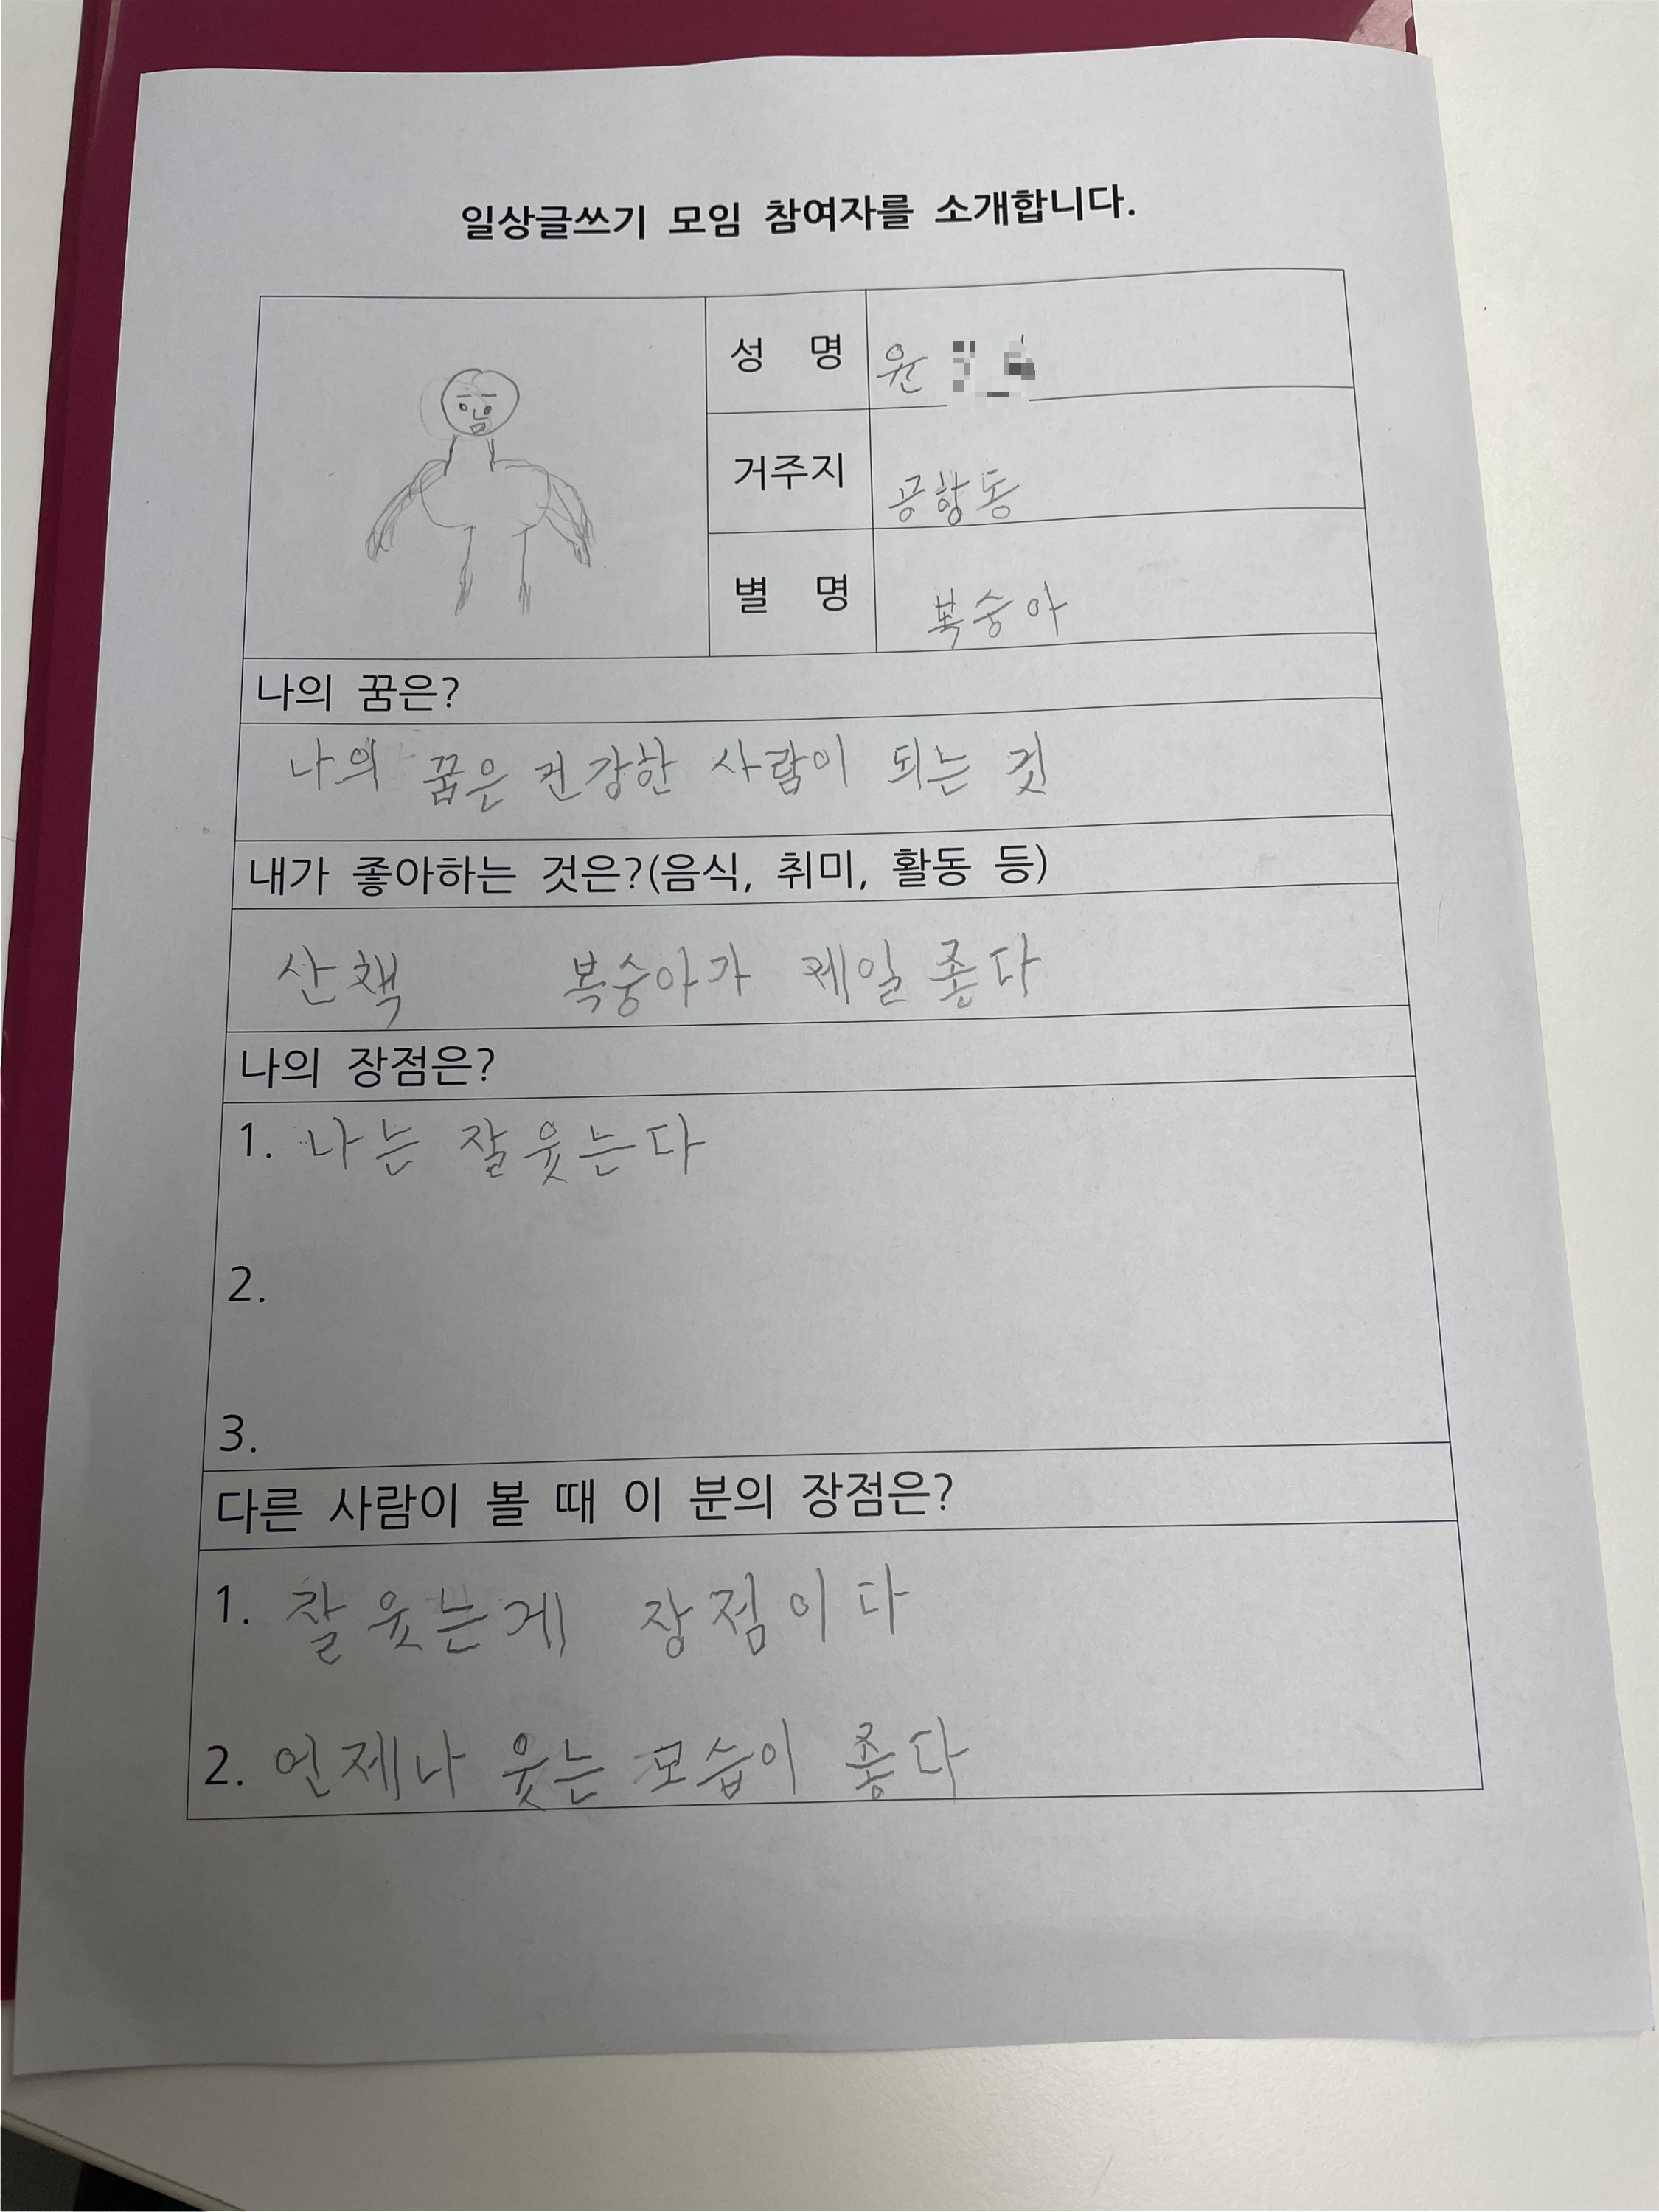 일상글쓰기 모임 참여자를 소개합니다.
성 명 원
거주지 공항동
별 명 복숭아
나의 꿈은?
나의 꿈은 건강한 사람이 되는 것
내가 좋아하는 것은?(음식, 취미, 활동 등)
산책 복숭아가 제일 좋다
나의 장점은?
1. 나는 잘 웃는다
2.
3.
다른 사람이 볼 때 이 분의 장점은?
1. 잘 웃는게 장점이다
2. 언제나 웃는 모습이 좋다